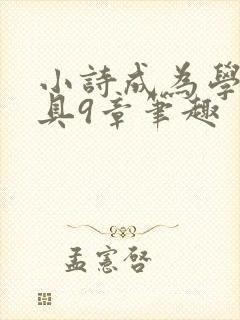 小詩成為學
具9章筆趣
孟憲啓